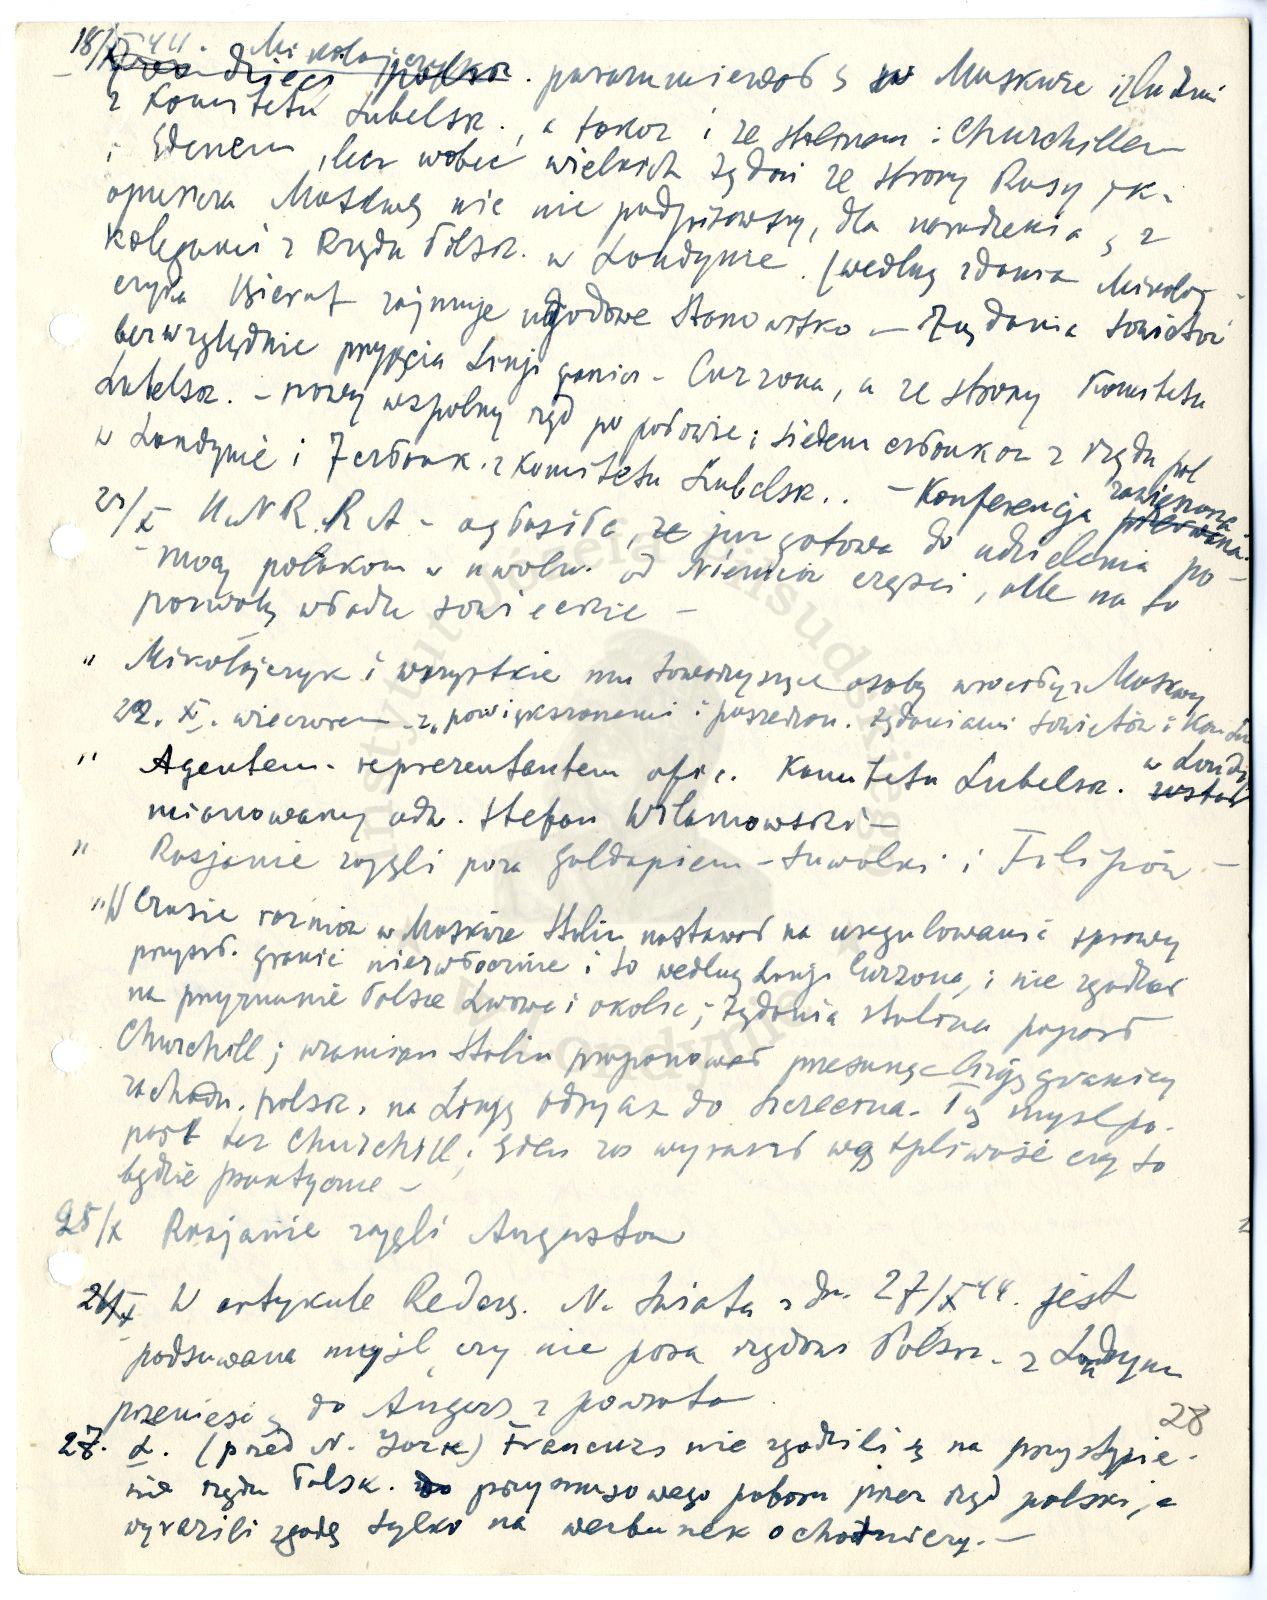 18/X 44. Mikołajczyk
porozumiewał ę w Moskwie z ludźmi
z Komitetu Lubelsk., a także i ze Stalinem i Churchillem
i Edenem, lecz wobec wielkich żądań ze strony Rosy
opuszcza Moskwę nic nie podpisawszy, dla naradzenia ę z
kolegami z Rządu Polsk. w Londynie. (według zdania Mikołaj-
czyka Bierut zajmuje ugodowe stanowisko — Żądania Sowietów
bezwzględnie przyjęcia Linji granicz- Curzona, a ze strony Komitetu
Lubelsk. - nowy wspólny rząd po połowie; siedem członków z rządu pol
w Londynie i 7 członk. z Komitetu Lubelsk.. - Konferencja zawieszona
przerwana.
/X U N R R A - ogłosiła, że już gotowa do udzielenia po-
mocy polakom w uwoln. od Niemców części, ale na to
pozwolą władze sowieckie —
" Mikołajczyk i wszystkie mu towarzyszące osoby wróciły z Moskwy
22. X. wieczorem - z „powiększonemi żądaniami Sowietów i
" Agentem - reprezentantem ofic. Komitetu Lubelsk. w Londy
mianowany adw. Stefan Wilamowski —
" Rosjanie zajęli poza Gołdapiem - Suwałki i Filipów —
" W czasie rozmów w Moskwie Stalin nastawał na uregulowanie sprawy
przyszł. granic niezwłocznie i to według Linji Curzona, i nie zgadzał
na przyznanie Polsce Lwowa i okolic; żądania Stalina poparł
Churchill; wzamian Stalin proponował przesunąć linję granicy
zachodn. polsk. na Linję Odry aż do Szczecina. Tę myśl po-
parł też Churchill; Eden zaś wyraził wątpliwość czy to
będzie praktyczne —
25/X Rosjanie zajęli Augustow
26/X W artykule Redacz. N. Świata z dn. 27/X 44. jest
podsuwana myśl, czy nie pora rządowi Polsk. z Londynu
przenieść ę do Angers z powrotem
28
27. X. (przed N. York) Francuzi nie zgodzili ę na przystąpie-
nie rządu Polsk. do przymusowego poboru przez rząd polski, a
wyrazili zgodę tylko na werbunek ochotniczy. —
Instytut Józefa Piłsudskiego
w Londynie